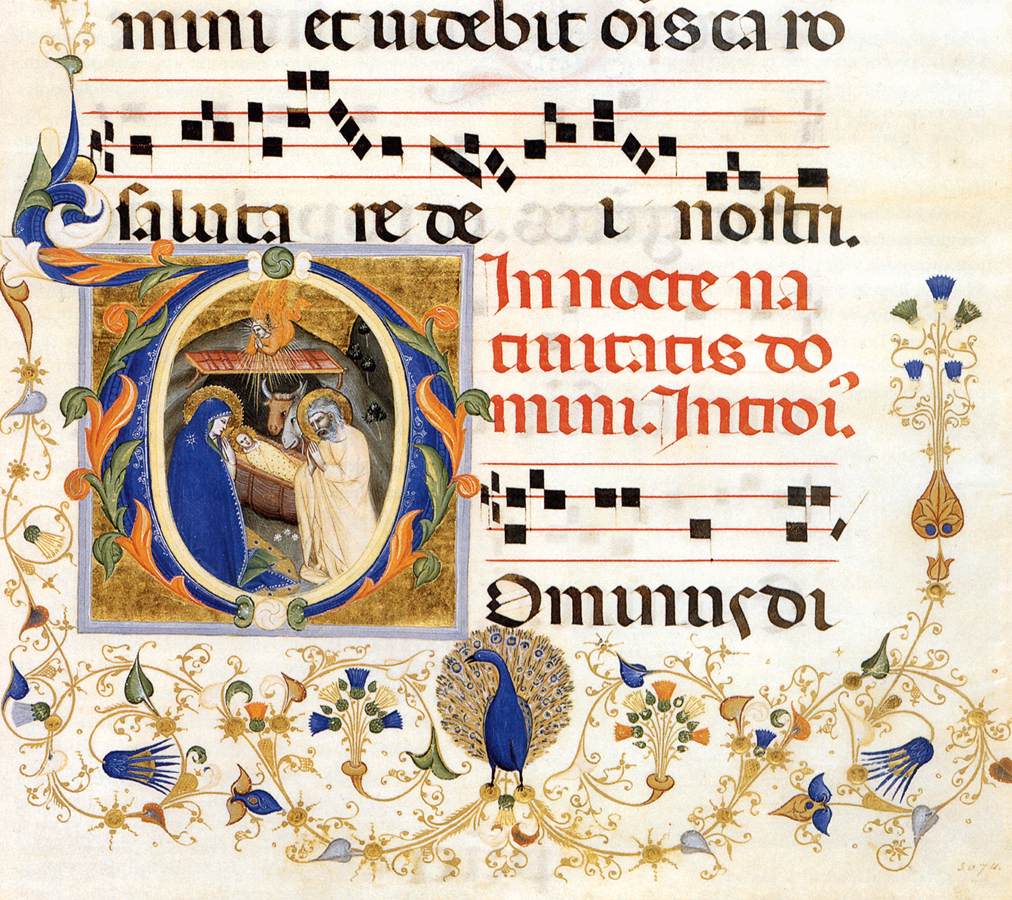 mini et uidebit oīs caro
saluta re de i nostri.
In nocte na
tiuitatis do
mini. Introi.
Ominus di
5074.